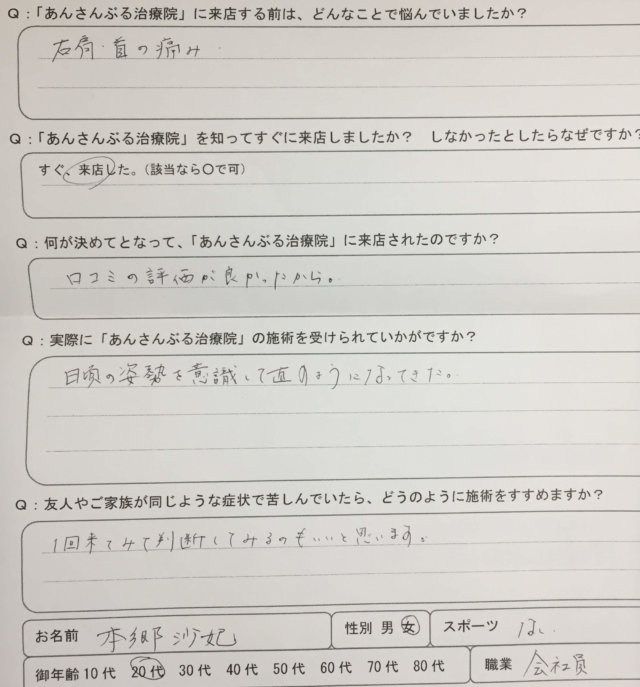 Q：「あんさんぶる治療院」に来店する前は、どんなことで悩んでいましたか？
右肩・首の痛み
Q：「あんさんぶる治療院」を知ってすぐに来店しましたか？　しなかったとしたらなぜですか？
すぐ、来店した。（該当なら〇で可）
Q：何が決めてとなって、「あんさんぶる治療院」に来店されたのですか？
口コミの評価が良かったから。
Q：実際に「あんさんぶる治療院」の施術を受けられていかがですか？
日頃の姿勢を意識して直のようになってきた。
Q：友人やご家族が同じような症状で苦しんでいたら、どうのように施術をすすめますか？
1回来てみて判断してみるのもいいと思います。
お名前　本郷沙妃　性別 男 女　スポーツ　ない
御年齢 10代　20代　30代　40代　50代　60代　70代　80代　職業　会社員